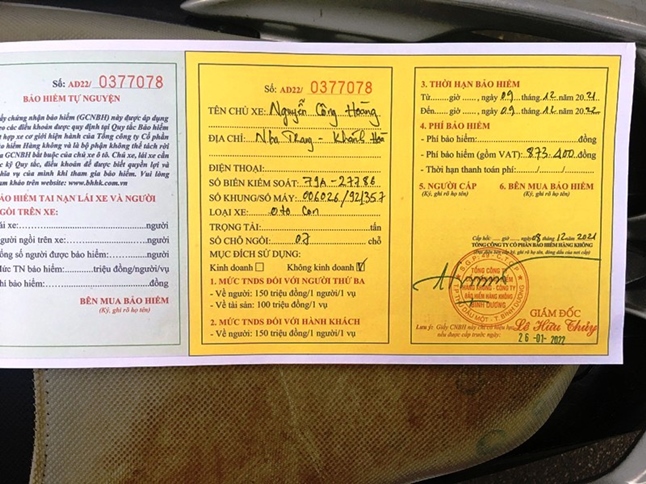 Số: AD22/ 0377078
BẢO HIỂM TỰ NGUYỆN
ấy chứng nhận bảo hiểm (GCNBH) này được áp dụng
eo các điều khoản được quy định tại Quy tắc Bảo hiểm
ết hợp xe cơ giới hiện hành của Tổng công ty Cổ phần
ảo hiểm Hàng không và là bộ phận không thể tách rời
a GCNBH bắt buộc của chủ xe ô tô. Chủ xe, lái xe cần
ọc kỹ Quy tắc, điều khoản để được biết quyền lợi và
hĩa vụ của mình khi tham gia bảo hiểm. Vui lòng
am khảo trên website: www.bhhk.com.vn
BẢO HIỂM TAI NẠN LÁI XE VÀ NGƯỜI
GỒI TRÊN XE:
ái xe:người
gười ngồi trên xe:người
ổng số người được bảo hiểm:người
ức TN bảo hiểm:triệu đồng/người/vụ
hí bảo hiểm:đồng
BÊN MUA BẢO HIỂM
(Ký, ghi rõ họ tên)
Số: AD22/ 0377078
TÊN CHỦ XE: Nguyễn Công Hoàng
ĐỊA CHỈ: Nha Trang - Khánh Hòa
ĐIỆN THOẠI:
SỐ BIỂN KIỂM SOÁT: 79A-27786
SỐ KHUNG/SỐ MÁY: 006026/92/357
LOẠI XE: Oto con
TRỌNG TẢI: tấn
SỐ CHỖ NGỒI: 07 chỗ
MỤC ĐÍCH SỬ DỤNG:
Kinh doanh Không kinh doanh
1. MỨC TNDS ĐỐI VỚI NGƯỜI THỨ BA
- Về người: 150 triệu đồng/1 người/1 vụ
- Về tài sản: 100 triệu đồng/1 vụ
2. MỨC TNDS ĐỐI VỚI HÀNH KHÁCH
- Về người: 150 triệu đồng/1 người/1 vụ
3. THỜI HẠN BẢO HIỂM
Từ....giờ ...., ngày 09 tháng 12 năm 2021
Đến....giờ ...., ngày 09 tháng 12 năm 2022
4. PHÍ BẢO HIỂM
- Phí bảo hiểm:đồng
- Phí bảo hiểm (gồm VAT): 873.400 đồng
- Thời hạn thanh toán phí: / /
5. NGƯỜI CẤP 6. BÊN MUA BẢO HIỂM
(Ký, ghi rõ họ tên) (Ký, ghi rõ họ tên)
Cấp hồi: giờ ngày 08 / 12 / 2021
TỔNG CÔNG TY CỔ PHẦN BẢO HIỂM HÀNG KHÔNG
TỔNG CÔNG TY
BẢO HIỂM HÀNG KHÔNG
BÌNH DƯƠNG
GIÁM ĐỐC
Lê Hữu Thủy
Lưu ý: Giấy CNBH này chỉ có hiệu lực
nếu được cấp trước ngày:
26-07-2022